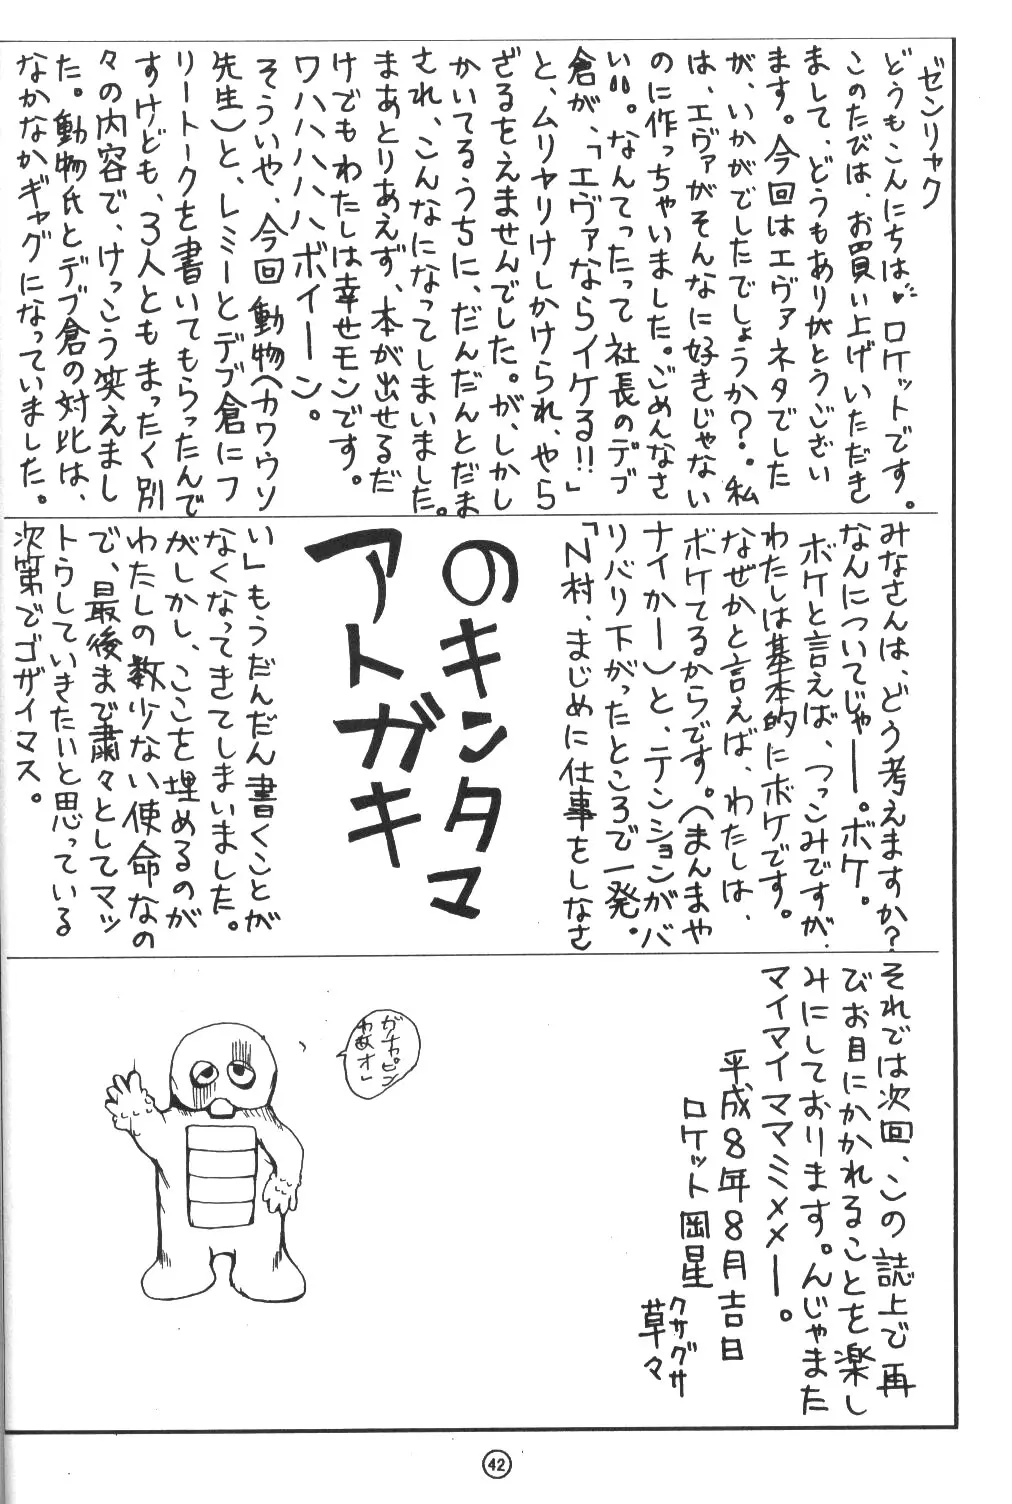 ゼンリャク
どうもこんにちは。ロケットです。
このたびは、お買い上げいただき
まして、どうもありがとうござい
ます。今回はエヴァネタでした
が、いかがでしたでしょうか?。私
は、エヴァがそんなに好きじゃない
のに作っちゃいました。ごめんなさ
い!!。なんてったって社長のデブ
倉が、「エヴァならイケる!!」
と、ムリヤリけしかけられ、やら
ざるをえませんでした。が、しかし
かいてるうちに、だんだんとだま
され、こんなになってしまいました。
まあとりあえず、本が出せるだ
けでもわたしは幸せモンです。
ワハハハハハボイーン。
そういや、今回動物(カワウソ
先生)と、レミーとデブ倉にフ
リートークを書いてもらったんで
すけども、3人ともまったく別
々の内容で、けっこう笑えまし
た。動物氏とデブ倉の対比は、
なかなかギャグになっていました。
みなさんは、どう考えますか?
なんについてじゃー。ボケ。
ボケと言えば、つっこみですが、
わたしは基本的にボケです。
なぜかと言えば、わたしは、
ボケてるからです。(まんまや
ナイかー)と、テンションがバ
リバリ下がったところで一発。
「N村、まじめに仕事をしなさ
のキンタマ
アトガキ
い」もうだんだん書くことが
なくなってきてしまいました。
がしかし、ここを埋めるのが
わたしの数少ない使命なの
で、最後まで粛々としてマッ
トウしていきたいと思っている
次第でゴザイマス。
それでは次回、この誌上で再
びお目にかかれることを楽し
みにしております。んじゃまた
マイマイママミメメー。
平成8年8月吉日
ロケット岡星
クサグサ
草々
ガチャピン